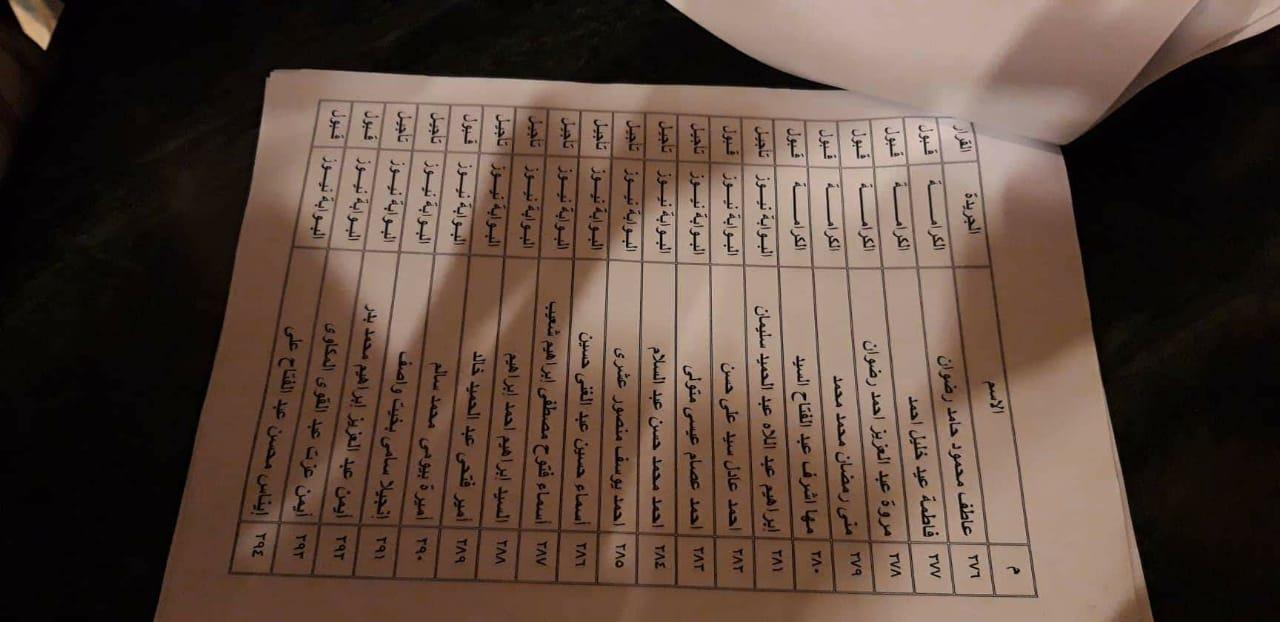 م الاسم الجريدة القرار
٢٧٦ عاطف محمود حامد رضوان الكرامــــة قبول
٢٧٧ فاطمة عيد خليل احمد الكرامــــة قبول
٢٧٨ مروة عبد العزيز احمد رضوان الكرامــــة قبول
٢٧٩ منى رمضان محمد محمد الكرامــــة قبول
٢٨٠ مها اشرف عبد الفتاح السيد الكرامــــة قبول
٢٨١ ابراهيم عبد اللاه عبد الحميد سليمان البوابة نيوز تأجيل
٢٨٢ احمد عادل سيد على حسن البوابة نيوز قبول
٢٨٣ احمد عصام عيسى متولى البوابة نيوز تأجيل
٢٨٤ احمد محمد حسن عبد السلام البوابة نيوز تأجيل
٢٨٥ احمد يوسف منصور عشرى البوابة نيوز تأجيل
٢٨٦ أسماء حسين عبد الغنى حسين البوابة نيوز تأجيل
٢٨٧ أسماء فتوح مصطفى ابراهيم شعيب البوابة نيوز تأجيل
٢٨٨ السيد ابراهيم احمد ابراهيم البوابة نيوز تأجيل
٢٨٩ أمير فتحى عبد الحميد خالد البوابة نيوز تأجيل
٢٩٠ اميرة بيومى محمد سالم البوابة نيوز قبول
٢٩١ انجيلا سامى بخيت واصف البوابة نيوز تأجيل
٢٩٢ أيمن عبد العزيز ابراهيم محمد بدر البوابة نيوز تأجيل
٢٩٣ أيمن عزت عبد القوى المكاوى البوابة نيوز قبول
٢٩٤ إيناس محسن عبد الفتاح على البوابة نيوز قبول